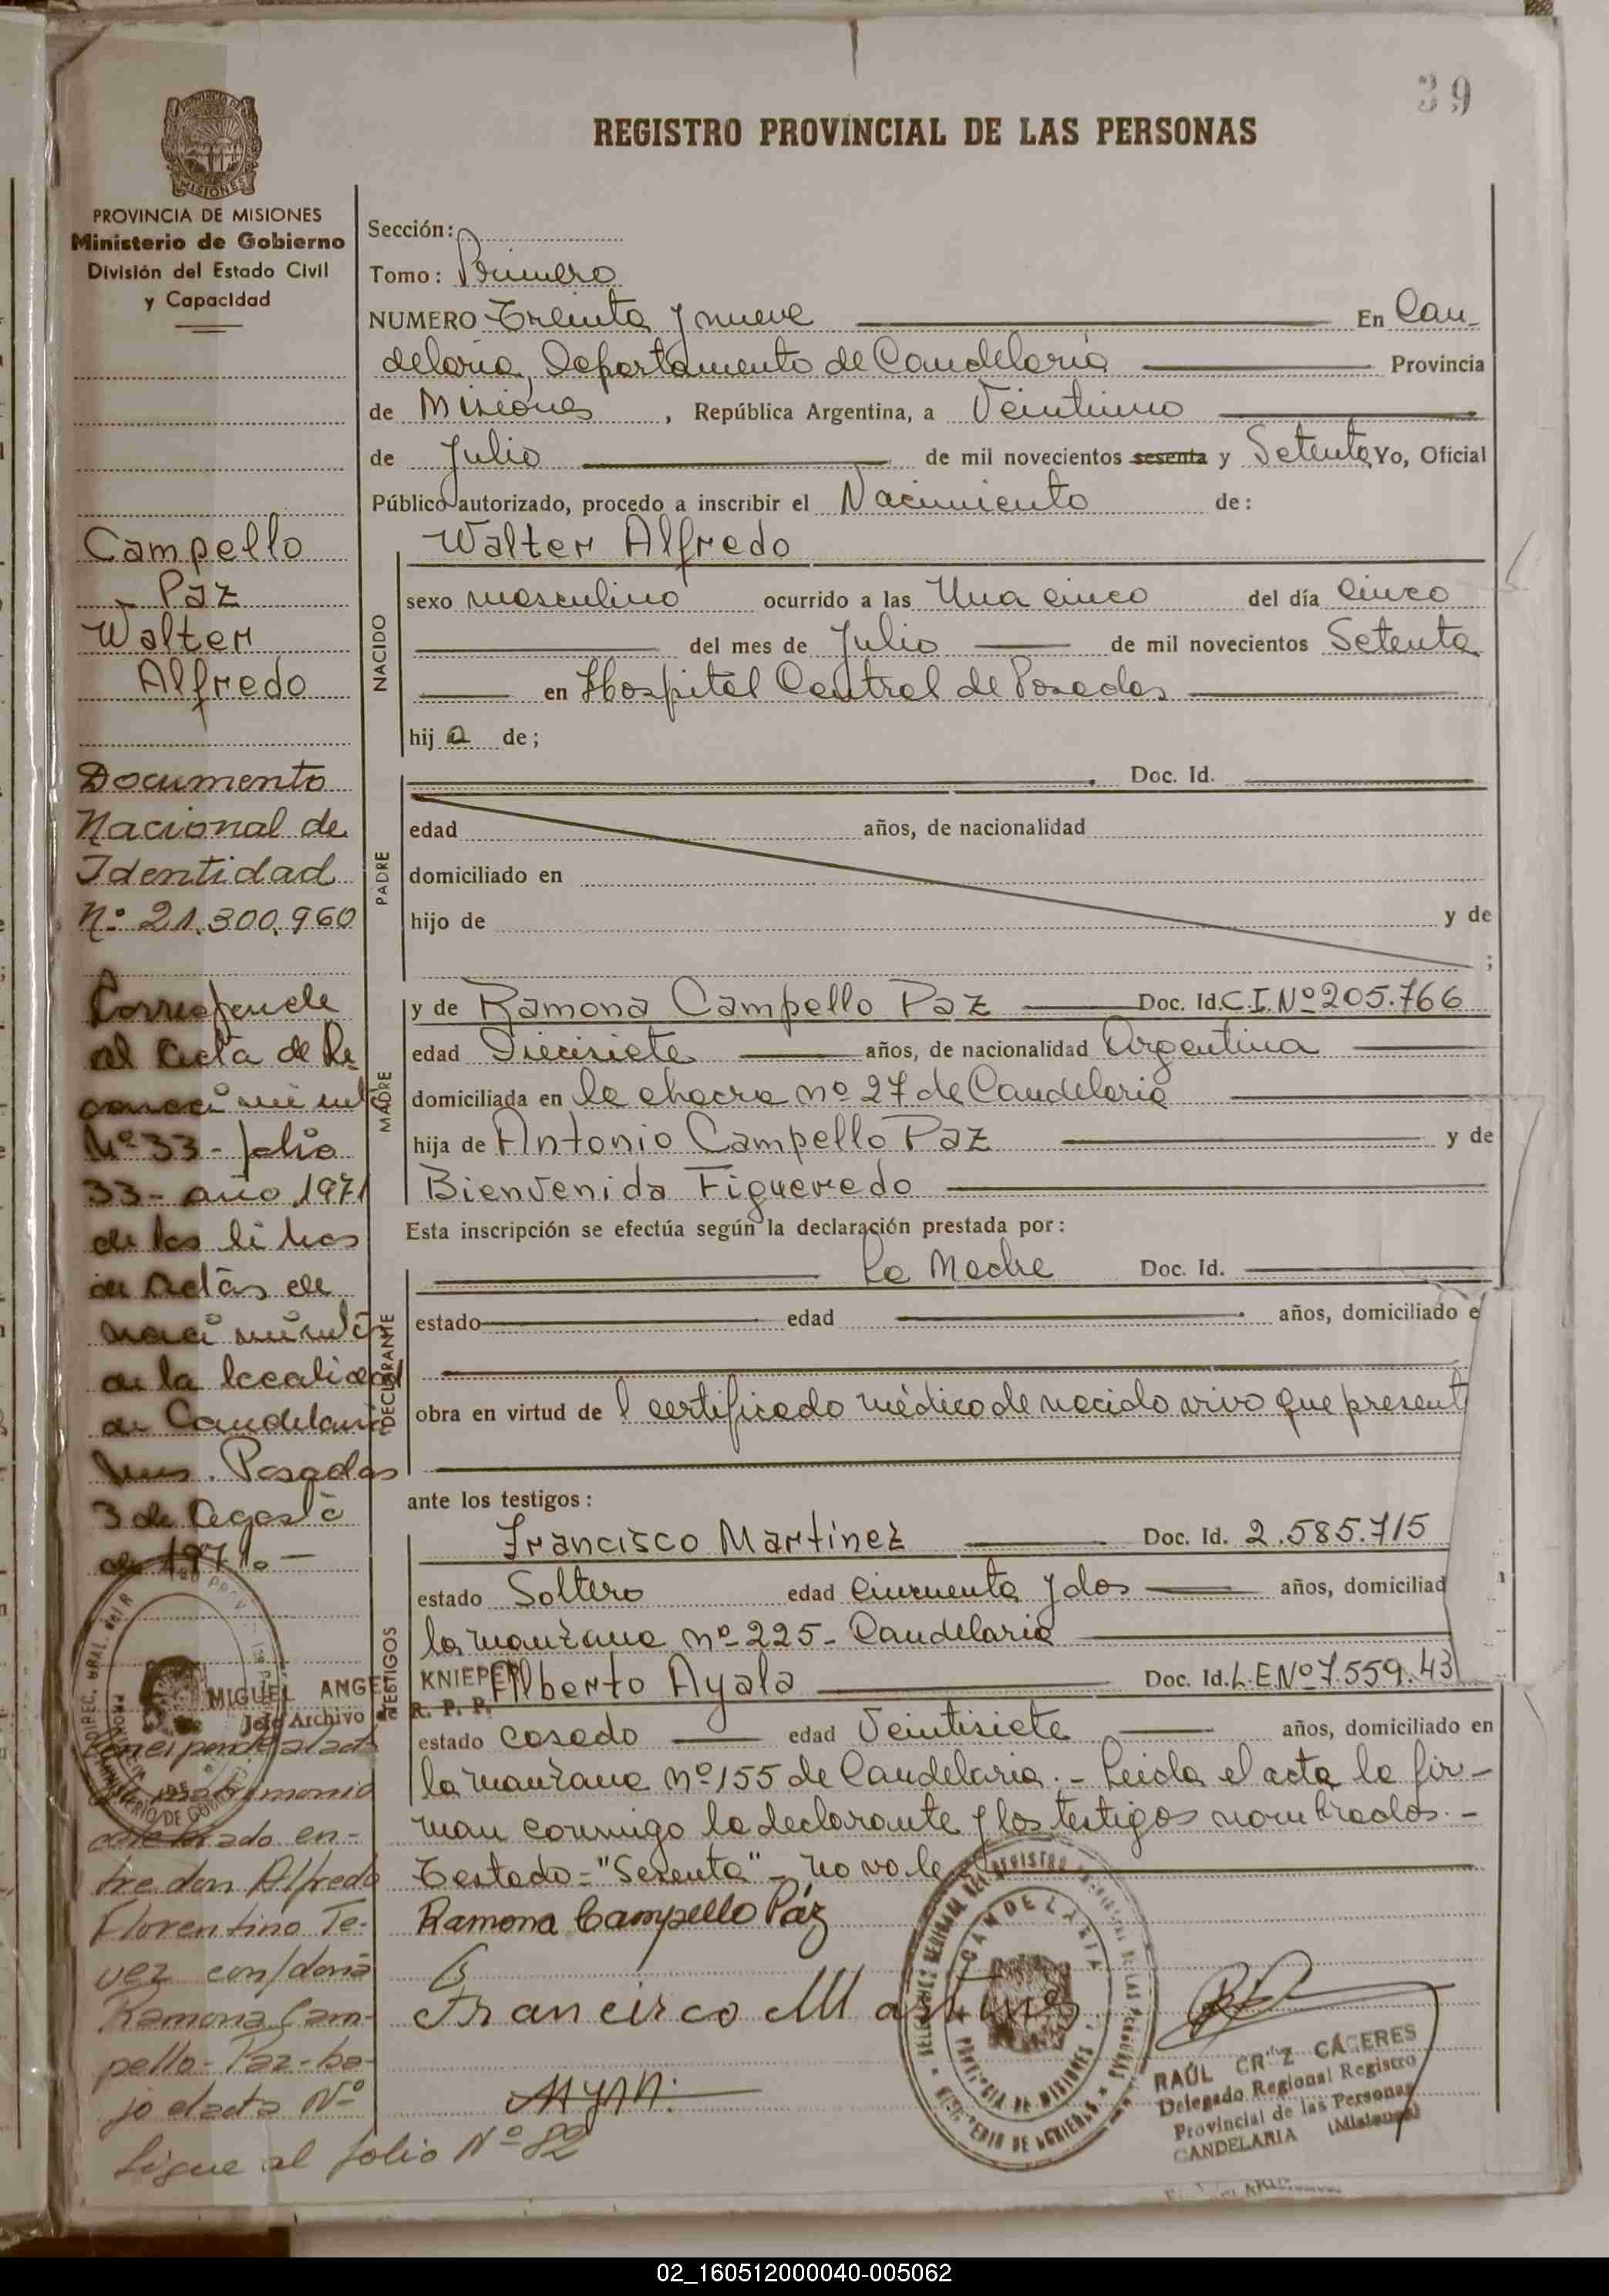 39
REGISTRO PROVINCIAL DE LAS PERSONAS
PROVINCIA DE MISIONES
Ministerio de Gobierno
División del Estado Civil
y Capacidad
Campello
Paz
Walter
Alfredo
Documento
Nacional de
Identidad
N.º 21.300.960
Corresponde
al acta de Re-
conocimiento
Nº 33 - folio
33 - año 1971
de los libros
de Actas de
nacimiento
de la localidad
de Candelaria
Mnes. Posadas
3 de Agosto
de 197
MIGUEL ANGEL KNIEPER
Jefe Archivo de R. P. P.
Corresponde al acta
de matrimonio
celebrado en-
tre don Alfredo
Florentino Te-
vez con/doña
Ramona Cam-
pello-Paz-ba-
jo el acta Nº
Sigue al folio Nº 82
Sección:
Tomo: Primero
NUMERO Treinta y nueve En Can-
delaria, Departamento de Candelaria Provincia
de Misiones, República Argentina, a Veintiuno
de Julio de mil novecientos sesenta y Setenta Yo, Oficial
Público autorizado, procedo a inscribir el Nacimiento de:
Walter Alfredo
NACIDO
sexo masculino ocurrido a las Una cinco del día Cinco
del mes de Julio de mil novecientos Setenta
en Hospital Central de Posadas
hij o de;
PADRE
Doc. Id.
edad años, de nacionalidad
domiciliado en
hijo de y de
;
MADRE
y de Ramona Campello Paz Doc. Id. C.I. Nº 205.766
edad Diecisiete años, de nacionalidad Argentina
domiciliada en la chacra nº 27 de Candelaria
hija de Antonio Campello Paz y de
Bienvenida Figueredo
Esta inscripción se efectúa según la declaración prestada por:
DECLARANTE
La Madre Doc. Id.
estado edad años, domiciliado e
obra en virtud de l certificado médico de nacido vivo que present
ante los testigos:
TESTIGOS
Francisco Martinez Doc. Id. 2.585.715
estado Soltero edad Cincuenta y dos años, domiciliad
la manzana nº 225 - Candelaria
Alberto Ayala Doc. Id. L.E Nº 7.559.43
estado Casado edad Veintisiete años, domiciliado en
la manzana nº 155 de Candelaria. - Leida el acta la fir-
man conmigo la declarante y los testigos nombrados. -
Testado = "Sesenta" - no vale
Ramona Campello Páz
Francisco Martines
CANDELARIA
PROVINCIA DE MISIONES
RAÚL CRUZ CÁCERES
Delegado Regional Registro
Provincial de las Personas
CANDELARIA (Misiones)
02_160512000040-005062